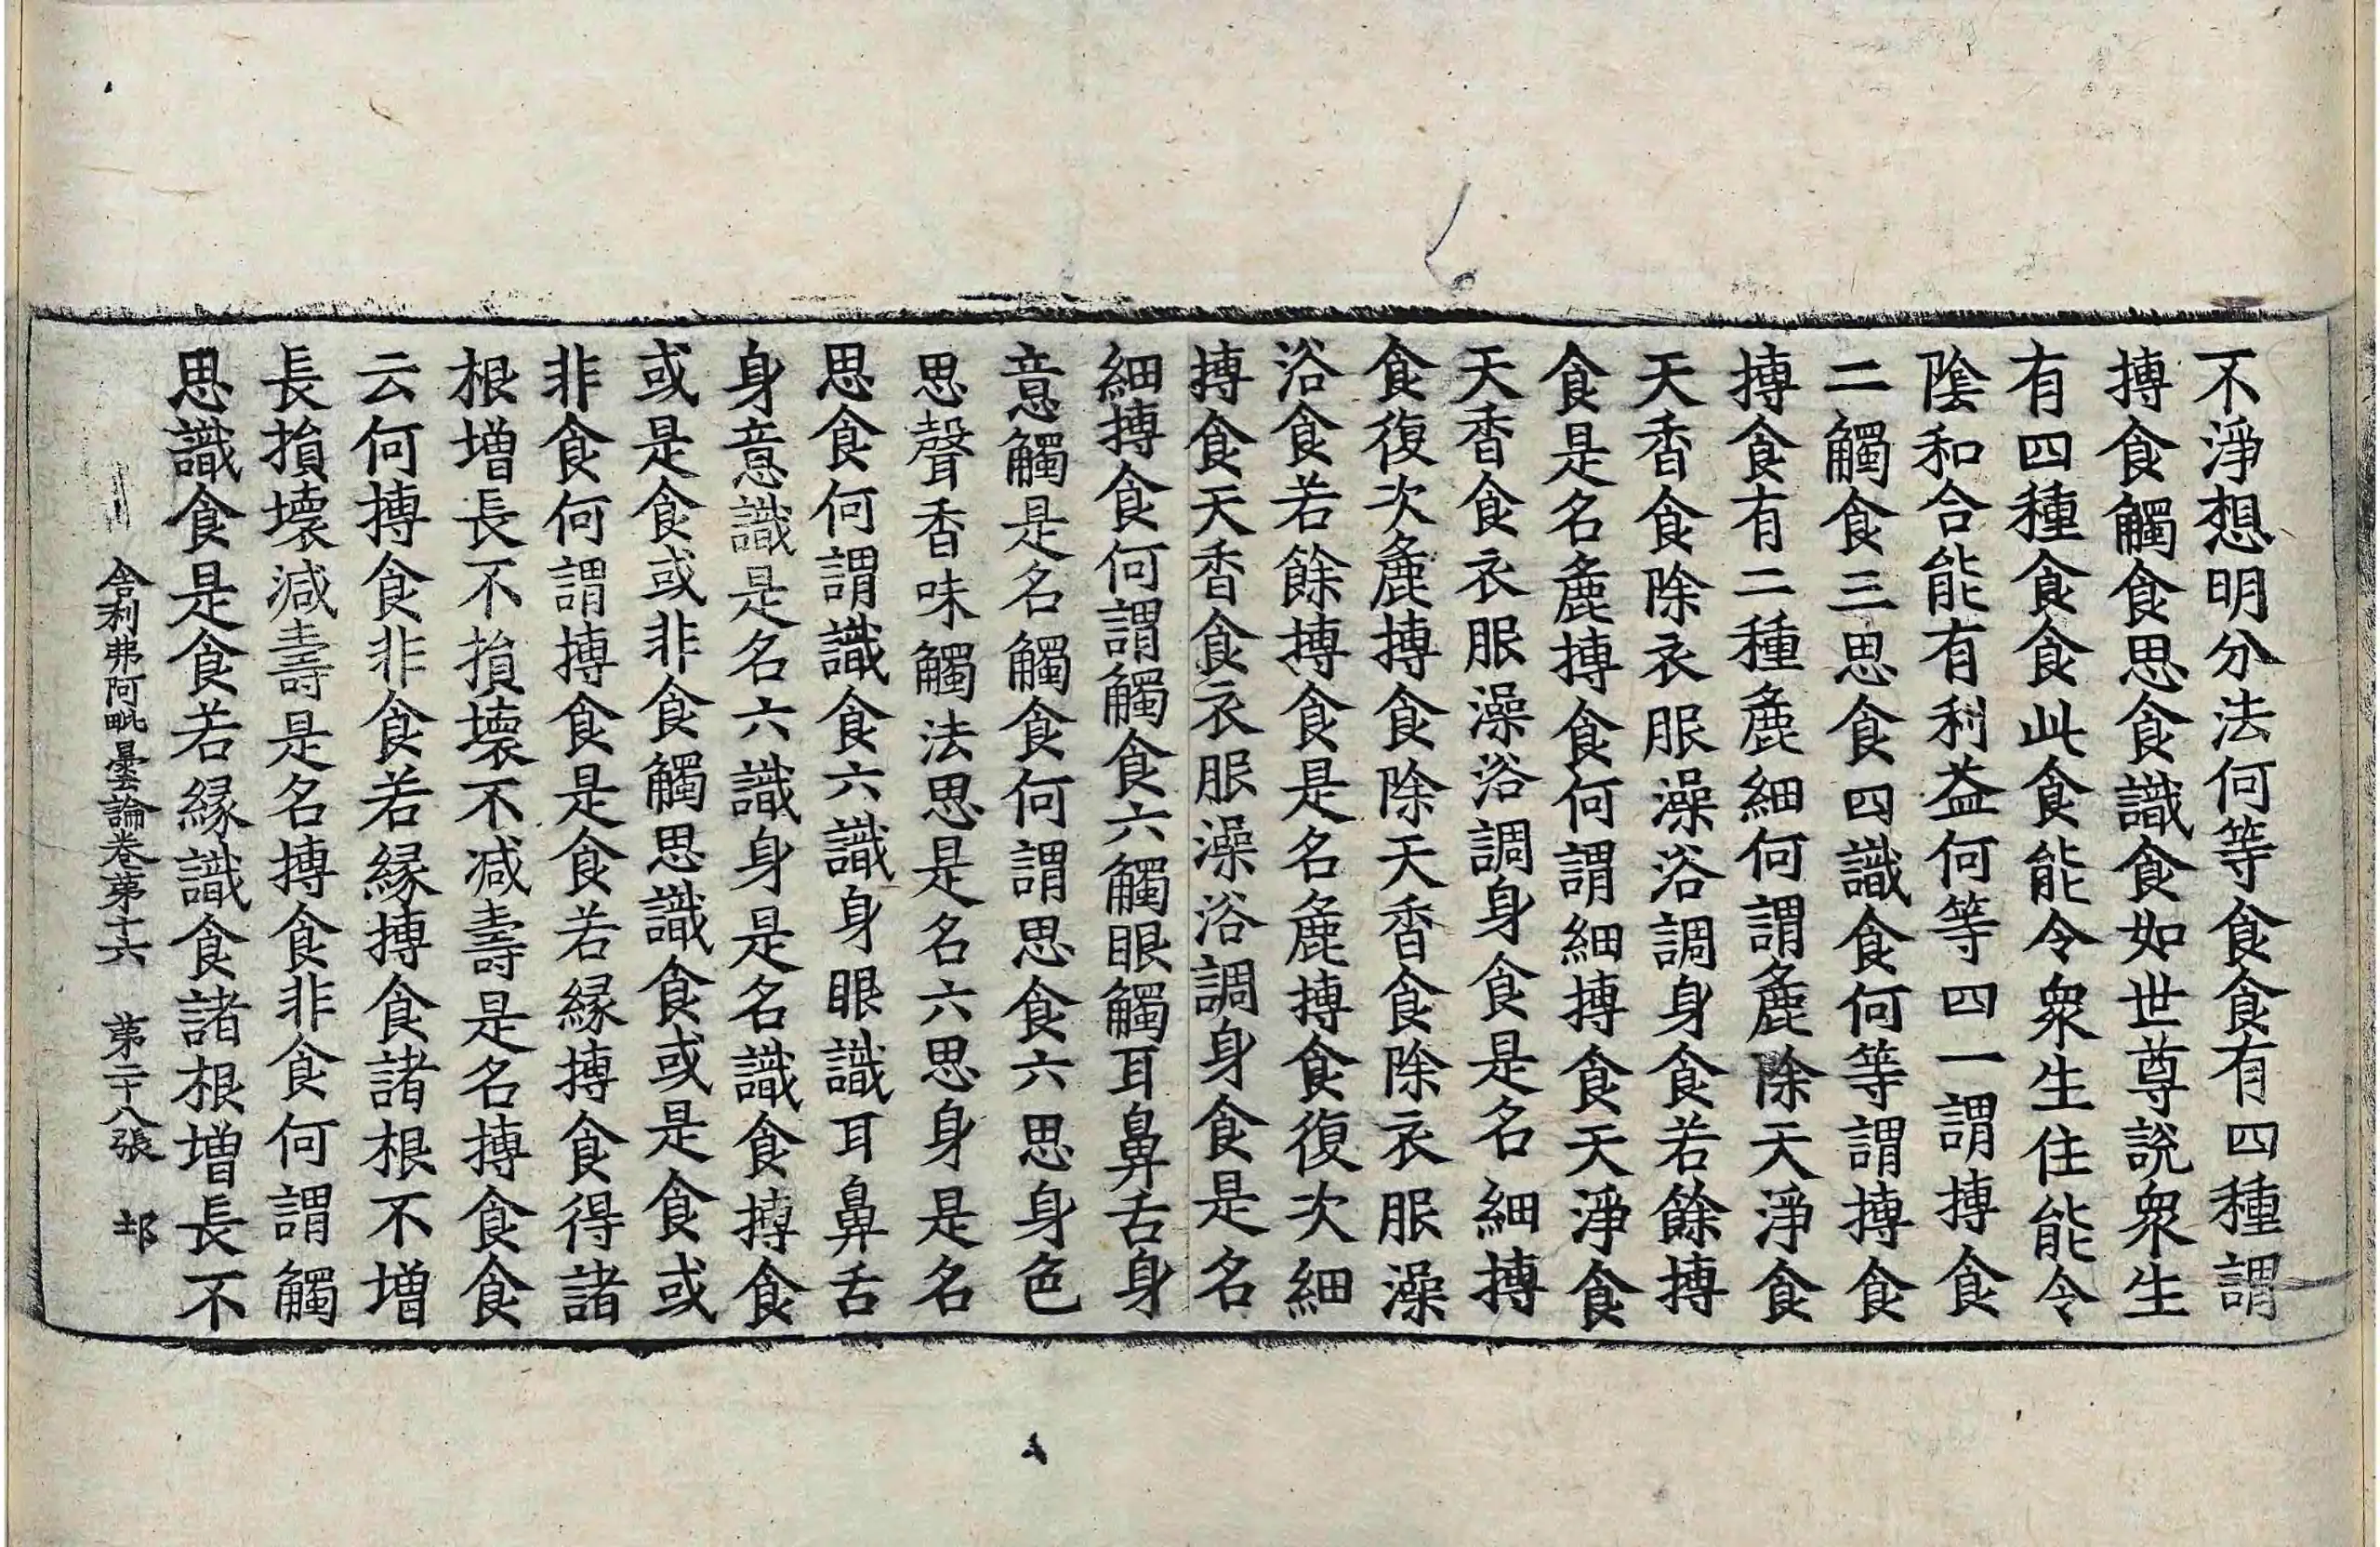 不淨想明分法何等食食有四種謂
摶食觸食思食識食如世尊說衆生
有四種食食此食能令衆生住能令
陰和合能有利益何等四一謂摶食
二觸食三思食四識食何等謂摶食
摶食有二種麁細何謂麁除天淨食
天香食除衣服澡浴調身食若餘摶
食是名麁摶食何謂細摶食天淨食
天香食衣服澡浴調身食是名細摶
食復次麁摶食除天香食除衣服澡
浴食若餘摶食是名麁摶食復次細
摶食天香食衣服澡浴調身食是名
細摶食何謂觸食六觸眼觸耳鼻舌身
意觸是名觸食何謂思食六思身色
思聲香味觸法思是名六思身是名
思食何謂識食六識身眼識耳鼻舌
身意識是名六識身是名識食摶食
或是食或非食觸思識食或是食或
非食何謂摶食是食若緣摶食得諸
根增長不損壞不減壽是名摶食食
云何摶食非食若緣摶食諸根不增
長損壞減壽是名摶食非食何謂觸
思識食是食若緣識食諸根增長不
舍利弗阿毗曇論卷第十六 第二十八張